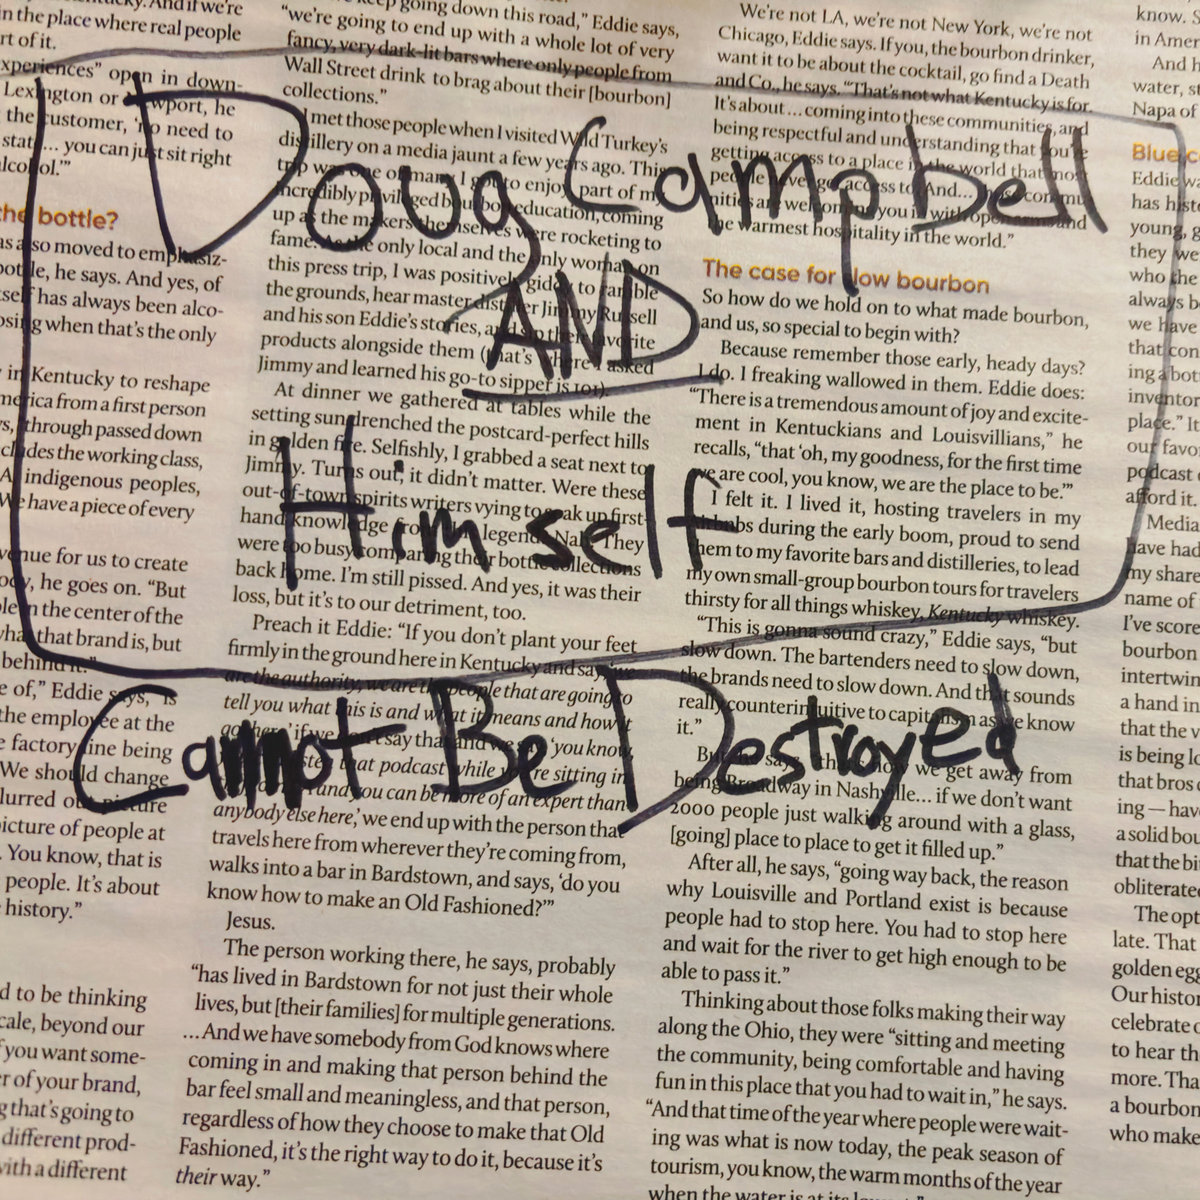 Doug Campbell
AND
Himself
Cannot Be Destroyed
in the place where real people
rt of it.
xperiences" open in down-
Lexington or
the customer, 'no need to
stat… you can just sit right
alcohol.'"
the bottle?
as also moved to emphasiz-
bottle, he says. And yes, of
tself has always been alco-
osing when that's the only
in Kentucky to reshape
merica from a first person
ys, through passed down
cludes the working class,
indigenous peoples,
We have a piece of every
venue for us to create
ody, he goes on. "But
in the center of the
that brand is, but
behind it."
e of," Eddie says, "is
the employee at the
factory line being
We should change
lurred out picture
picture of people at
. You know, that is
people. It's about
history."
d to be thinking
cale, beyond our
f you want some-
er of your brand,
g that's going to
different prod-
with a different
keep going down this road," Eddie says,
"we're going to end up with a whole lot of very
fancy, very dark-lit bars where only people from
Wall Street drink to brag about their [bourbon]
collections."
I met those people when I visited Wild Turkey's
distillery on a media jaunt a few years ago. This
trip was one of many I got to enjoy, part of my
incredibly privileged bourbon education, coming
up as the makers themselves were rocketing to
fame. As the only local and the only woman on
this press trip, I was positively giddy to ramble
the grounds, hear master distiller Jimmy Russell
and his son Eddie's stories, and sip their favorite
products alongside them (that's where I asked
Jimmy and learned his go-to sipper is 101).
At dinner we gathered at tables while the
setting sun drenched the postcard-perfect hills
in golden fire. Selfishly, I grabbed a seat next to
Jimmy. Turns out, it didn't matter. Were these
out-of-town spirits writers vying to soak up first-
hand knowledge from the legend? Nah. They
were too busy comparing their bottle collections
back home. I'm still pissed. And yes, it was their
loss, but it's to our detriment, too.
Preach it Eddie: "If you don't plant your feet
firmly in the ground here in Kentucky and say, 'we
are the authority, we are the people that are going to
tell you what this is and what it means and how it
got here' if we don't say that and we say 'you know,
that podcast while you're sitting in
and you can be more of an expert than
anybody else here,' we end up with the person that
travels here from wherever they're coming from,
walks into a bar in Bardstown, and says, 'do you
know how to make an Old Fashioned?'"
Jesus.
The person working there, he says, probably
"has lived in Bardstown for not just their whole
lives, but [their families] for multiple generations.
…And we have somebody from God knows where
coming in and making that person behind the
bar feel small and meaningless, and that person,
regardless of how they choose to make that Old
Fashioned, it's the right way to do it, because it's
their way."
We're not LA, we're not New York, we're not
Chicago, Eddie says. If you, the bourbon drinker,
want it to be about the cocktail, go find a Death
and Co., he says. "That's not what Kentucky is for.
It's about … coming into these communities, and
being respectful and understanding that you're
getting access to a place in the world that most
people never get access to. And… the commu-
nities are welcoming you in with open arms and
the warmest hospitality in the world."
The case for slow bourbon
So how do we hold on to what made bourbon,
and us, so special to begin with?
Because remember those early, heady days?
I do. I freaking wallowed in them. Eddie does:
"There is a tremendous amount of joy and excite-
ment in Kentuckians and Louisvillians," he
recalls, "that 'oh, my goodness, for the first time
we are cool, you know, we are the place to be.'"
I felt it. I lived it, hosting travelers in my
Airbnbs during the early boom, proud to send
them to my favorite bars and distilleries, to lead
my own small-group bourbon tours for travelers
thirsty for all things whiskey, Kentucky whiskey.
"This is gonna sound crazy," Eddie says, "but
slow down. The bartenders need to slow down,
the brands need to slow down. And that sounds
really counterintuitive to capitalism as we know
it."
But he says, "that's how we get away from
being Broadway in Nashville… if we don't want
2000 people just walking around with a glass,
[going] place to place to get it filled up."
After all, he says, "going way back, the reason
why Louisville and Portland exist is because
people had to stop here. You had to stop here
and wait for the river to get high enough to be
able to pass it."
Thinking about those folks making their way
along the Ohio, they were "sitting and meeting
the community, being comfortable and having
fun in this place that you had to wait in," he says.
"And that time of the year where people were wait-
ing was what is now today, the peak season of
tourism, you know, the warm months of the year
when the water is at its lowest."
know. S
in Amer
And h
water, st
Napa of
Blue c
Eddie wa
has histo
young, g
they we
who the
always b
we have
that con
ing a bot
inventor
place." It
our favo
podcast
afford it.
Media
have had
my share
name of
I've score
bourbon
intertwin
a hand in
that the v
is being lo
that bros
ing—hav
a solid bou
that the bi
obliterated
The opt
late. That
golden egg
Our histor
celebrate
to hear th
more. Tha
a bourbon
who make